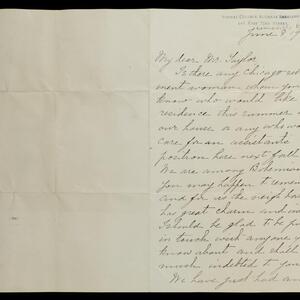 June 8
My dear Mr. Taylor
Is there any Chicago set
ment woman whom you
know who would like
residence this summer
our house or any who wo
care for an assistants
position here next fall
We are among Bohemian
you may happen to remem
and for us the neigh bo
has great charm and
I should be glad to be p
in touch with anyone
know about and shall
much indebted to you
We have just had an